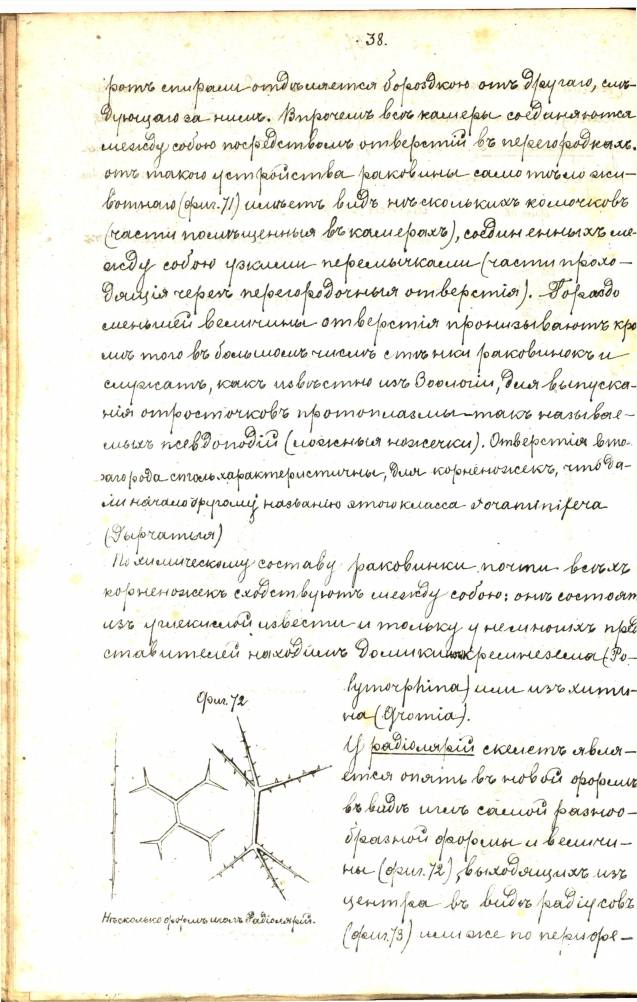 38.
ротъ спирали отдѣляется бороздкою отъ другаго, слѣ-
дующаго за нимъ. Впрочемъ всѣ камеры соединяются
между собою посредствомъ отверстій въ перегородкахъ.
отъ такого устройства раковины само тѣло жи-
вотнаго (фиг. 71) имѣетъ видъ нѣсколькихъ комочковъ
(части помѣщенныя въ камерахъ), соединенныхъ ме-
жду собою узкими перемычками (части прохо-
дящія черезъ перегородочныя отверстія). Гораздо
меньшей величины отверстія пронизываютъ кро
мѣ того въ большомъ числѣ стѣнки раковинокъ и
служатъ, какъ извѣстно изъ Зоологіи, для выпуска-
нія отросточковъ протоплазмы — такъ называе-
мыхъ псевдоподій (ложныя ножечки). Отверстія вто-
раго рода столь характеристичны, для корненожекъ, что да-
ли начало другому названію этого класса Foraminifera
(Дырчатыя)
По химическому составу раковинки почти всѣхъ
корненожекъ сходствуютъ между собою: онѣ состоят
изъ углекислой извести и тольку у немногихъ пред
ставителей находимъ домики изъ кремнезема (Po-
lymorphina) или изъ хити-
на (Gromia).
У радіолярій скелетъ явля-
ется опять въ новой формѣ
въ видѣ иглъ самой разноо-
бразной формы и величи-
ны (фиг. 72), выходящихъ изъ
центра въ видѣ радіусовъ
(фиг. 73) или же по перифе-
Фиг. 72
Нѣсколько формъ иголъ Радіолярій.